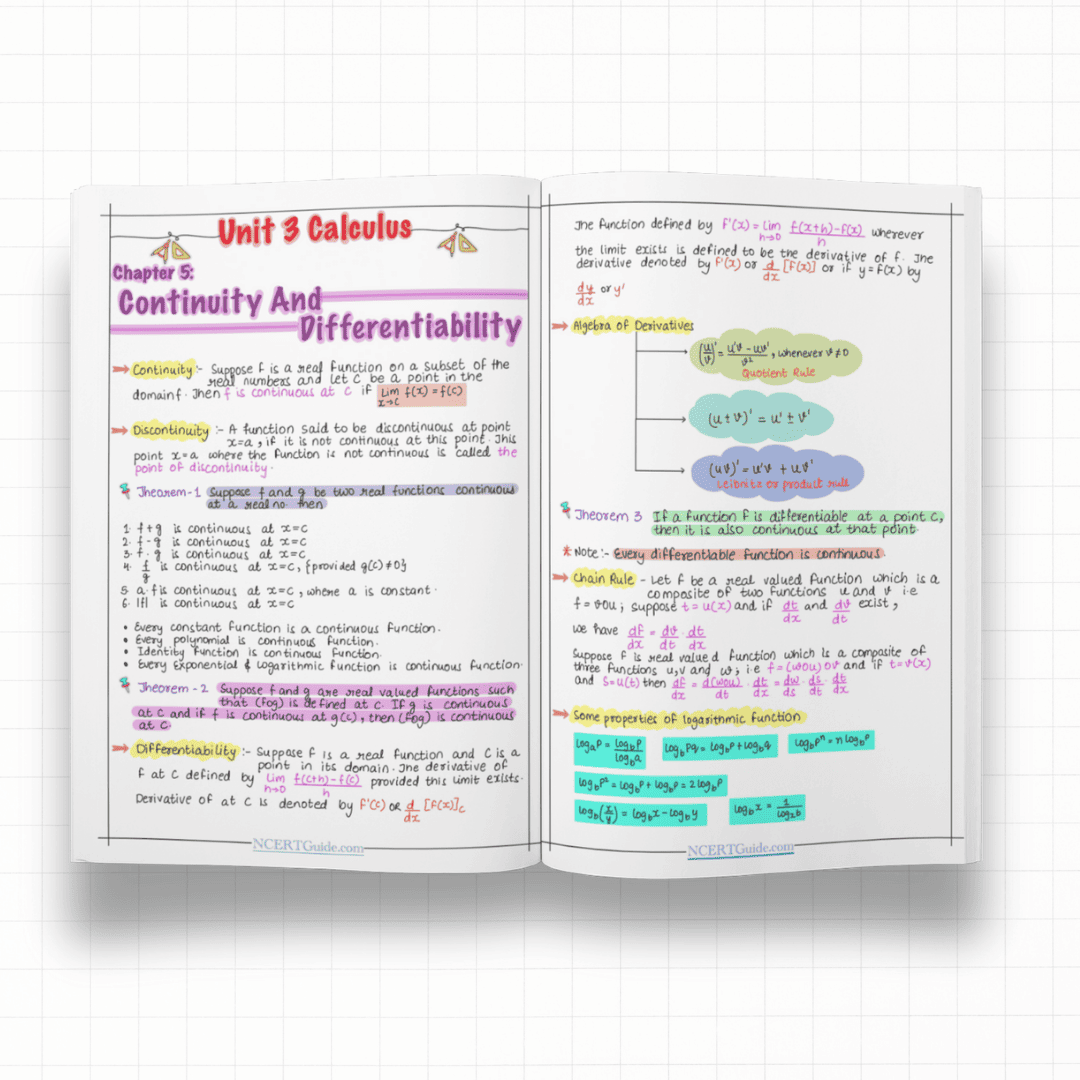 Unit 3 Calculus
Chapter 5:
Continuity And
Differentiability
Continuity :- Suppose f is a real function on a subset of the
real numbers and let C be a point in the
domain f. Then f is continuous at C if Lim x→c f(x) = f(c)
Discontinuity :- A function said to be discontinuous at point
x=a, if it is not continuous at this point. This
point x=a where the function is not continuous is called the
point of discontinuity.
Theorem-1 Suppose f and g be two real functions continuous
at a real no. then
1. f+g is continuous at x=c
2. f-g is continuous at x=c
3. f.g is continuous at x=c
4. f/g is continuous at x=c, {provided g(c) ≠ 0}
5. a.f is continuous at x=c, where a is constant.
6. |f| is continuous at x=c
• Every constant function is a continuous function.
• Every polynomial is continuous function.
• Identity function is continuous function.
• Every Exponential & logarithmic function is continuous function.
Theorem - 2 Suppose f and g are real valued functions such
that (fog) is defined at c. If g is continuous
at c and if f is continuous at g(c), then (fog) is continuous
at c
Differentiability :- Suppose f is a real function and C is a
point in its domain. The derivative of
f at C defined by Lim h→0 f(c+h)-f(c)/h provided this limit exists.
Derivative of at C is denoted by f'(c) OR d/dx [f(x)]c
NCERTGuide.com
The function defined by f'(x) = lim h→0 f(x+h)-f(x)/h wherever
the limit exists is defined to be the derivative of f. The
derivative denoted by f'(x) or d/dx [f(x)] or if y=f(x) by
dy/dx or y'
Algebra of Derivatives
(u/v)' = u'v - uv'/v², whenever v≠0
Quotient Rule
(u ± v)' = u' ± v'
(uv)' = u'v + uv'
Leibnitz or product rule
Theorem 3 If a function f is differentiable at a point C,
then it is also continuous at that point.
* Note :- Every differentiable function is continuous.
Chain Rule - Let f be a real valued function which is a
composite of two functions u and v i.e
f = vou; suppose t = u(x) and if dt/dx and dv/dt exist,
we have df/dx = dv/dt . dt/dx
Suppose f is real valued function which is a composite of
three functions u, v and w; i.e f = (wou) ov and if t = v(x)
and S = u(t) then df/dx = d(wou)/dt . dt/dx = dw/ds . ds/dt . dt/dx
Some properties of logarithmic function
logₐp = log_b p/log_b a log_b pq = log_b p + log_b q log_b pⁿ = n log_b p
log_b p² = log_b p + log_b p = 2 log_b p
log_b (x/y) = log_b x - log_b y log_b x = 1/log_x b
NCERTGuide.com